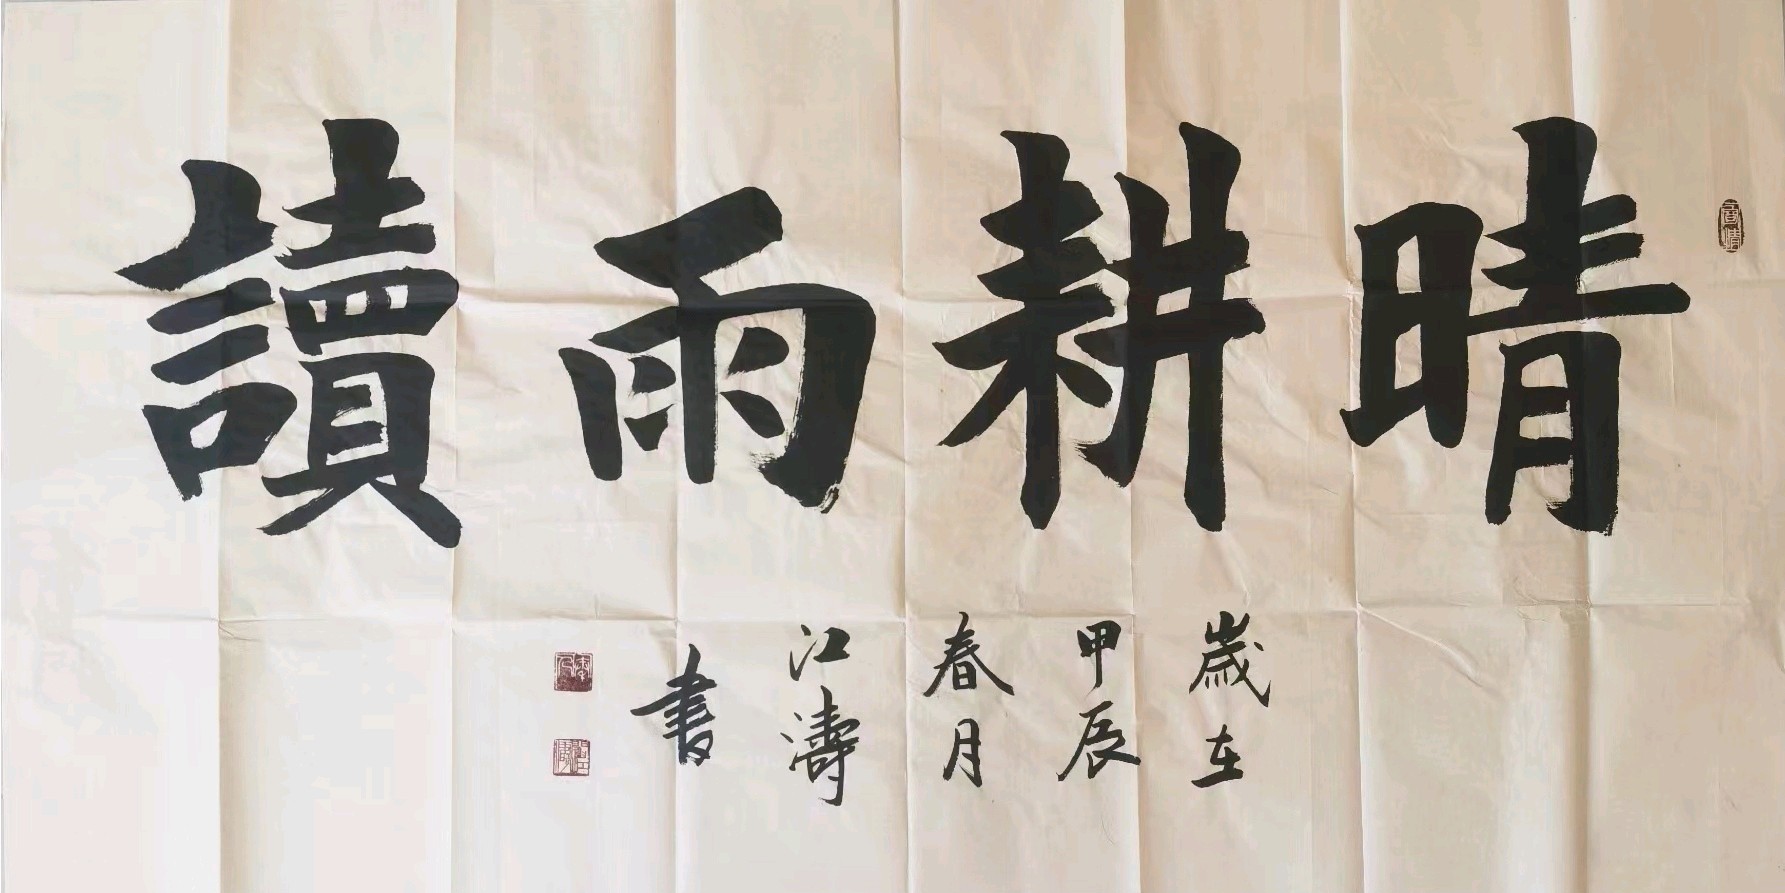 晴耕雨讀
歲在
甲辰
春月
江濤
書